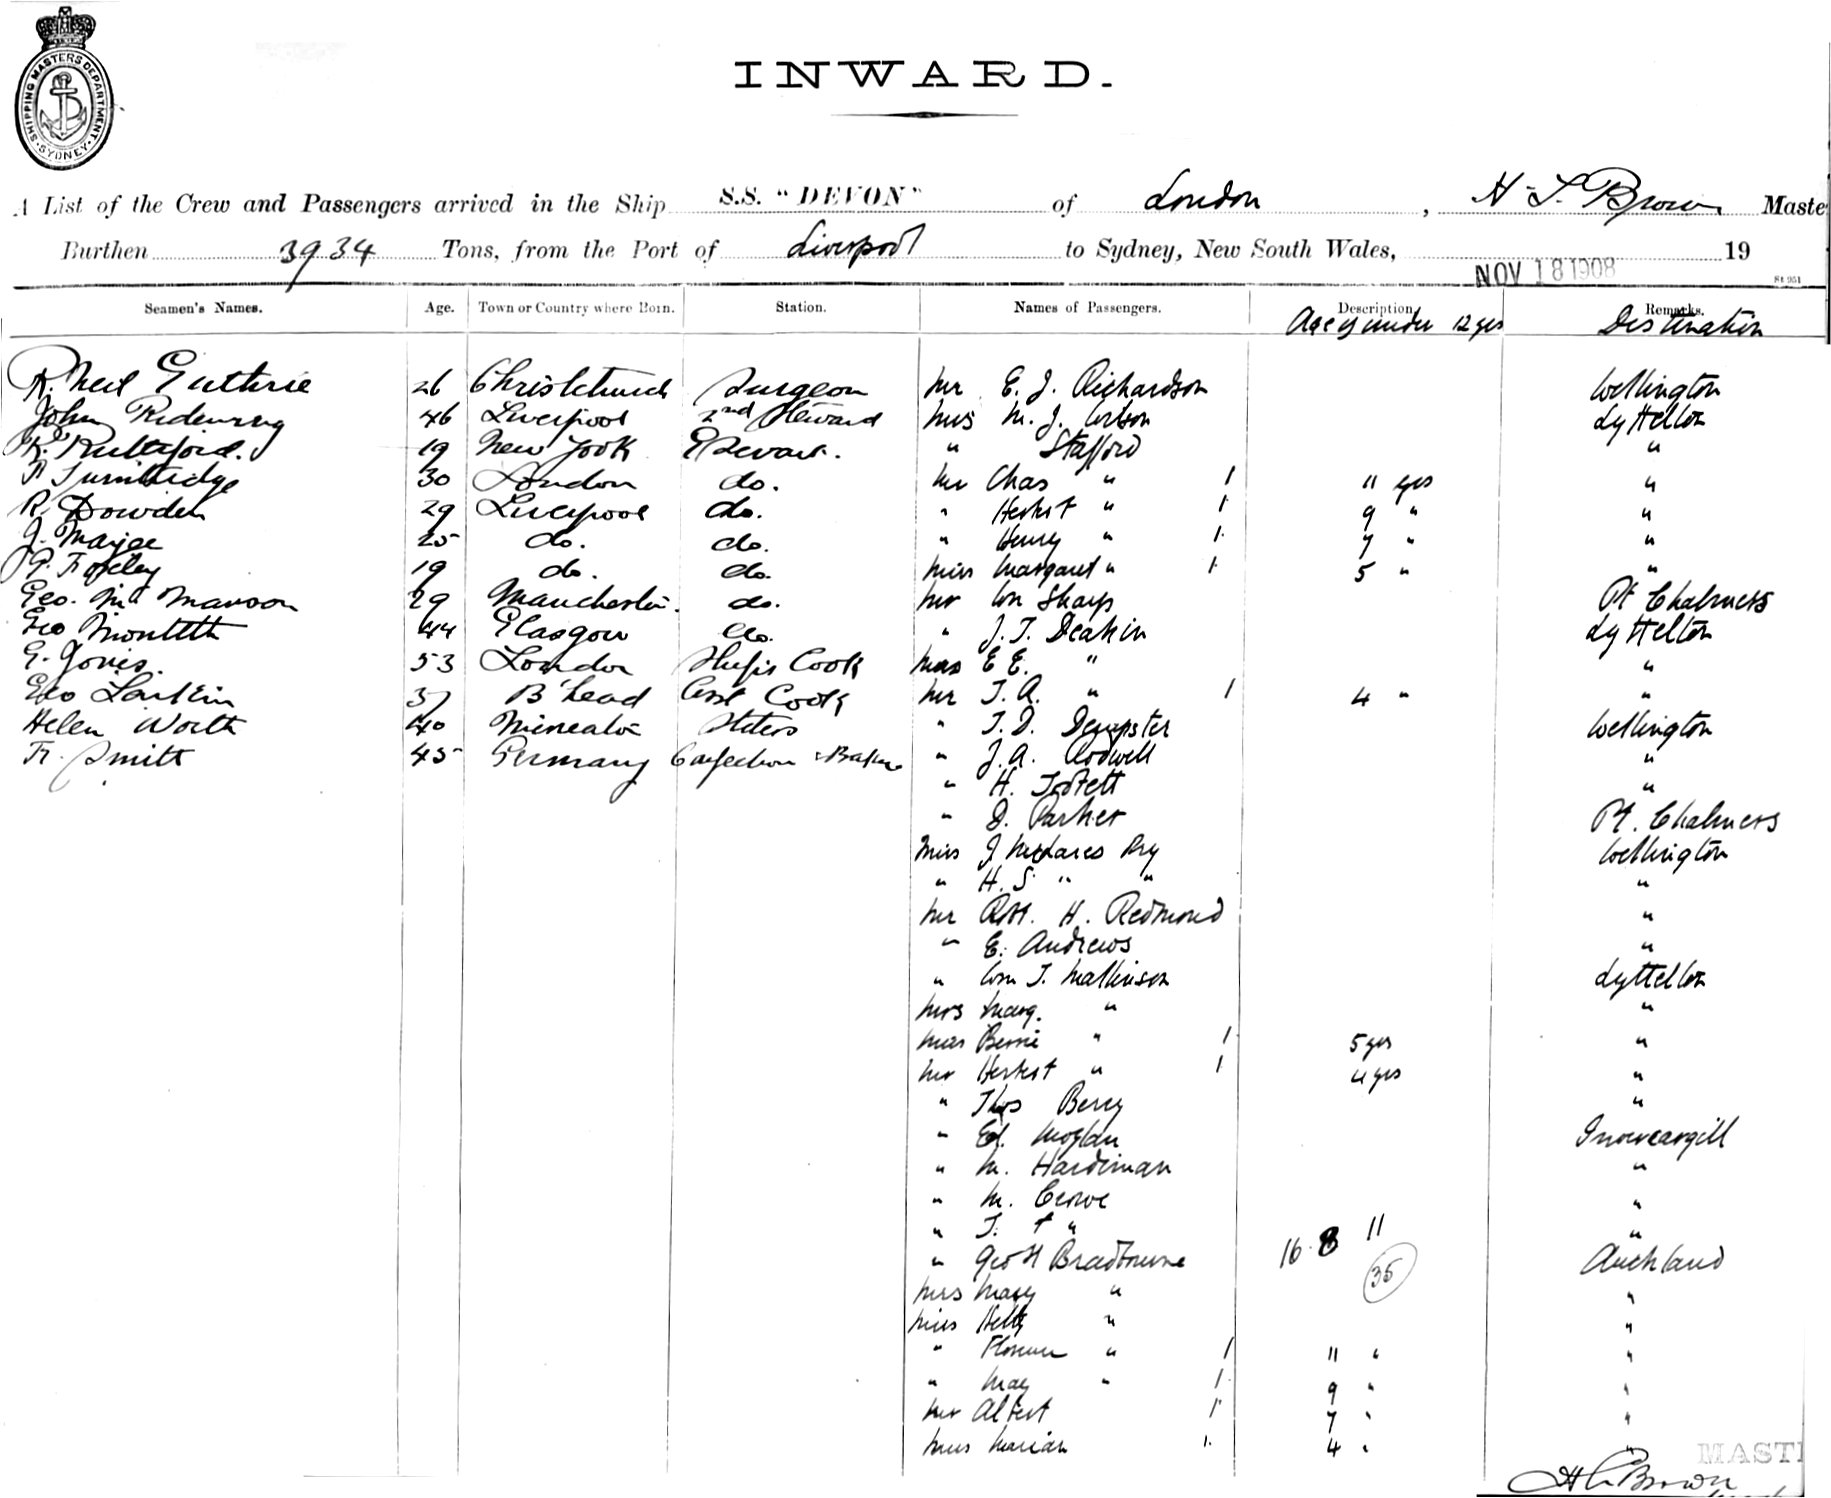 SHIPPING MASTERS DEPARTMENT · SYDNEY ·
INWARD.
A List of the Crew and Passengers arrived in the Ship S.S. "DEVON" of London, H L Brown Maste
Burthen 3934 Tons, from the Port of Liverpool to Sydney, New South Wales, NOV 18 1908 19
St 951
Seamen's Names. Age. Town or Country where Born. Station. Names of Passengers. Description, Remarks.
Age if under 12 yrs Destination
Neil Guthrie 26 Christchurch Surgeon Mr E. J. Richardson Wellington
John 46 Liverpool 2nd Steward M. J. Lyttelton
Rutherford. 19 New York " Stafford "
30 London do. Mr Chas " 1 11 yrs "
R. Dowden 29 Liverpool do. " Herbst " 1 9 " "
J. Magee 25 do. do. " Henry " 1 7 " "
19 do. do. Miss Margaret " 1 5 " "
Geo. 29 Manchester do. Mr Wm Sharp Pt Chalmers
Geo Monteith 44 Glasgow do. " J. T. Deakin Lyttelton
53 London Ships Cook E E. " "
Geo Larkin 37 B'head Asst Cook Mr T. A. " 1 4 " "
Helen Worth 40 " T. D. Dempster Wellington
Fr. Smith 45 Germany Confection & Baker " J. A. Rodwell "
" H. "
" D. Parker Pt. Chalmers
Miss J Wellington
" H. S. " " "
Mr Robt. H. Redmond "
" E. Andrews "
" Wm T. Mallinson Lyttelton
Mrs Marg. " "
" 1 5 yrs "
Mr Herbst " 1 4 yrs "
" Thos Berry "
" Ed. Invercargill
" M. Hardiman "
" M. Crowe "
" T. " "
16 8 11
" Geo H Auckland
35
Mrs Mary " "
Miss Hetty " "
" Florence " 1 11 " "
" May " 1 9 " "
Mr Albert 1 7 " "
Miss Marian 1 4 " "
MAST
H L Brown